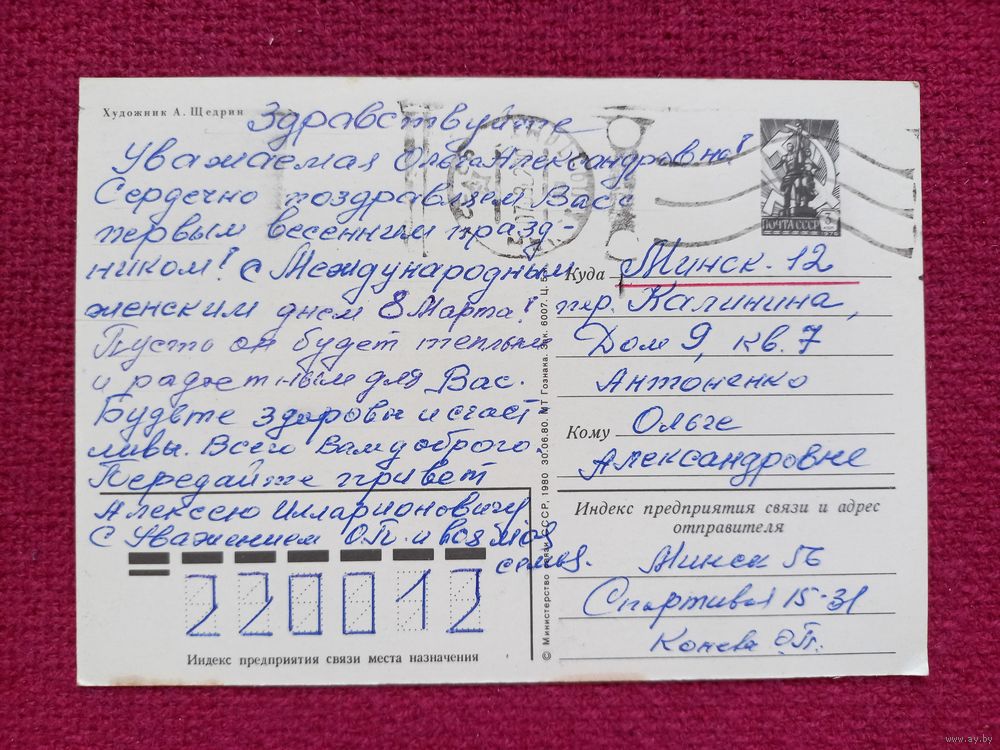 Художник А. Щедрин
Здравствуйте
Уважаемая Ольга Александровна!
Сердечно поздравляем Вас с
первым весенним празд-
ником! С Международным
женским днем 8 Марта!
Пусть он будет теплым
и радостным для Вас.
Будьте здоровы и счаст
ливы. Всего Вам доброго.
Передайте привет
Алексею Илларионовичу
С Уважением О.П. и вся моя
семья.
220012
Индекс предприятия связи места назначения
© Министерство связи СССР, 1980 30.06.80. МТ Гознака. Зак. 6007. Ц. 5 к.
ПОЧТА СССР 3 1976
Куда Минск-12
пр. Калинина,
Дом 9, кв. 7
Антоненко
Кому Ольге
Александровне
Индекс предприятия связи и адрес
отправителя
Минск 56
Спортивная 15-31
О.П.
www.ay.by